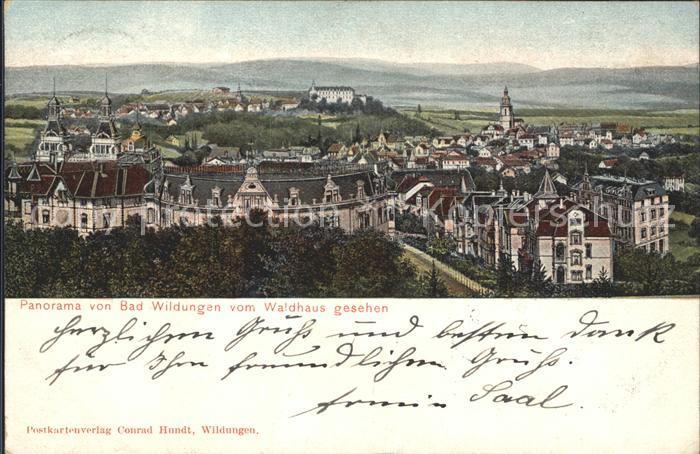 Panorama von Bad Wildungen vom Waldhaus gesehen
herzlichen Gruss und besten Dank
für Ihre freundlichen Gruss.
Armin Saal.
Postkartenverlag Conrad Hundt, Wildungen.